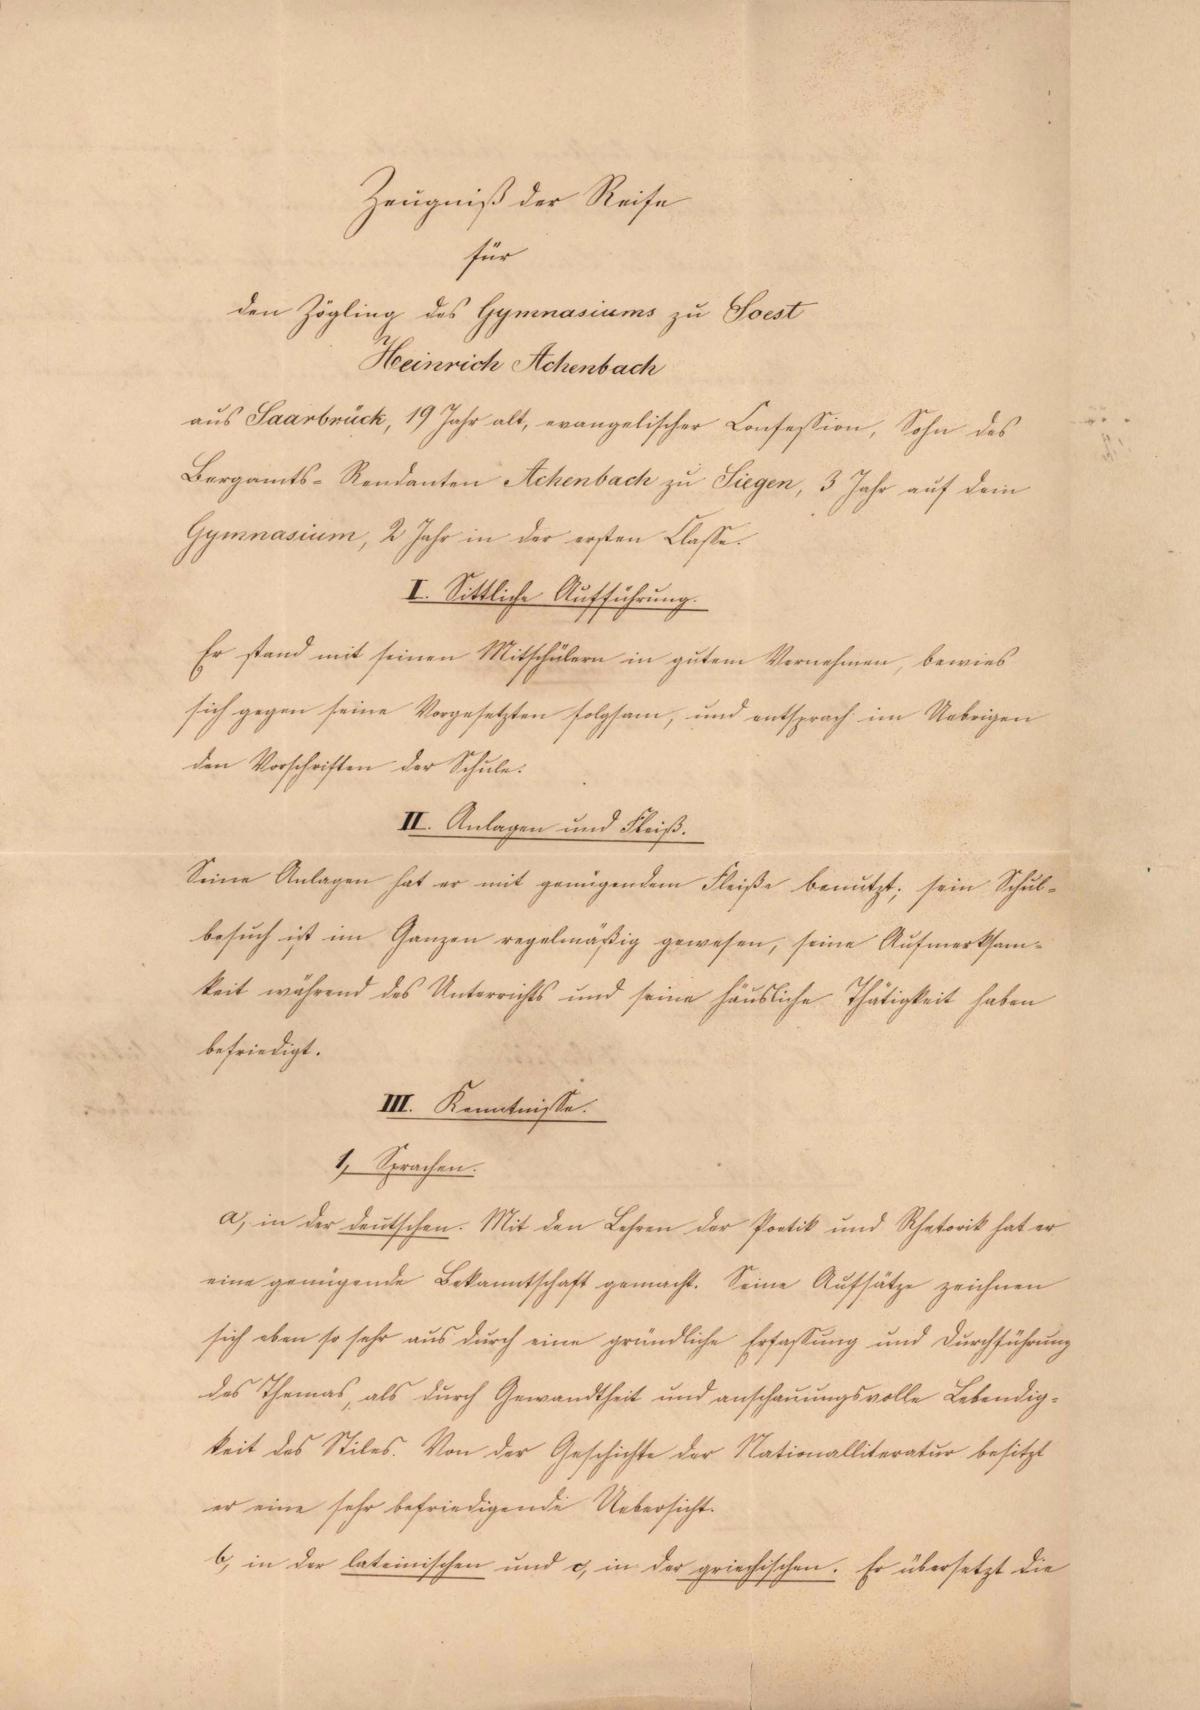 Zeugniß der Reife
für
den Zögling des Gymnasiums zu Soest
Heinrich Achenbach
aus Saarbrück, 19 Jahr alt, evangelischer Confession, Sohn des
Bergamts-Rendanten Achenbach zu Siegen, 3 Jahr auf dem
Gymnasium, 2 Jahr in der ersten Classe.
I. Sittliche Aufführung.
Er stand mit seinen Mitschülern in gutem Vernehmen, bewies
sich gegen seine Vorgesetzten folgsam, und entsprach im Uebrigen
den Vorschriften der Schule.
II. Anlagen und Fleiß.
Seine Anlagen hat er mit genügendem Fleiße benutzt; sein Schul-
besuch ist im Ganzen regelmäßig gewesen, seine Aufmerksam-
keit während des Unterrichts und seine häusliche Thätigkeit haben
befriedigt.
III. Kenntnisse.
1, Sprachen.
a, in der deutschen. Mit den Lehren der Poetik und Rhetorik hat er
eine genügende Bekanntschaft gemacht. Seine Aufsätze zeichnen
sich eben so sehr aus durch eine gründliche Erfassung und Durchführung
des Themas, als durch Gewandtheit und anschauungsvolle Lebendig-
keit des Stiles. Von der Geschichte der Nationalliteratur besitzt
er eine sehr befriedigende Uebersicht.
b, in der lateinischen und c, in der griechischen. Er übersetzt die